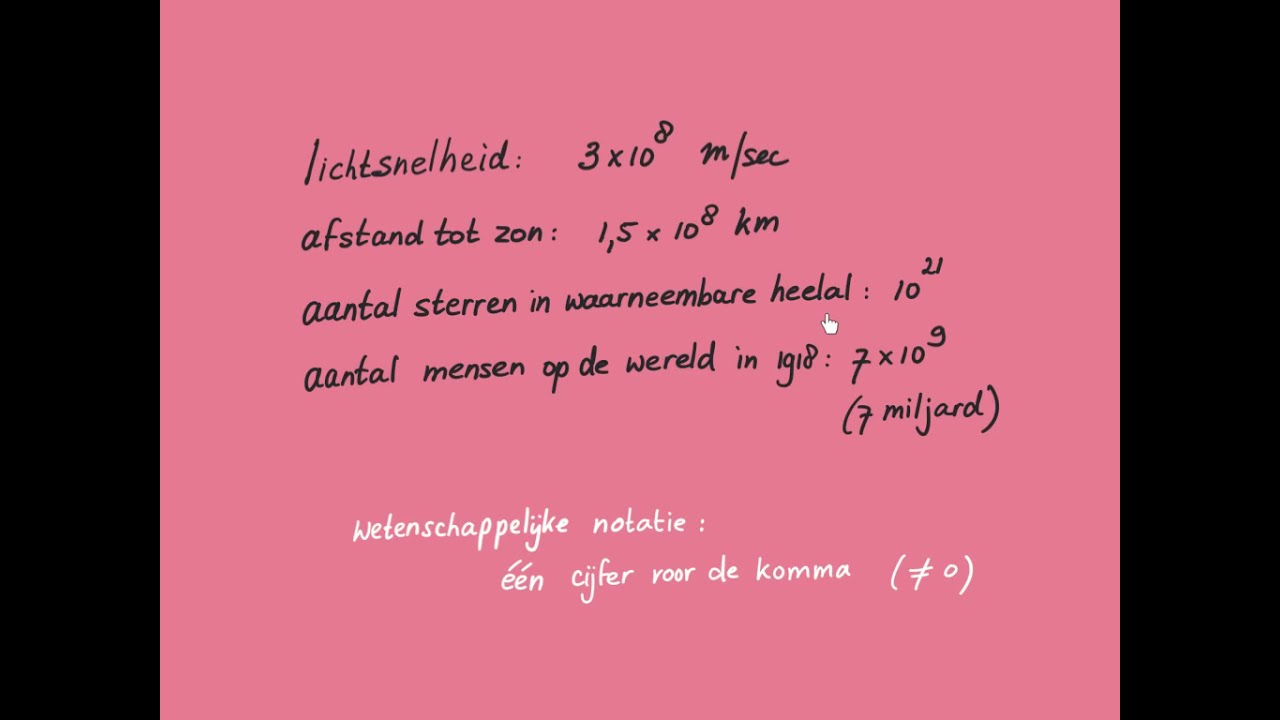 lichtsnelheid: 3 x 10⁸ m/sec
afstand tot zon: 1,5 x 10⁸ km
aantal sterren in waarneembare heelal: 10²¹
aantal mensen op de wereld in 1918: 7 x 10⁹
(7 miljard)
wetenschappelijke notatie:
één cijfer voor de komma (≠ 0)